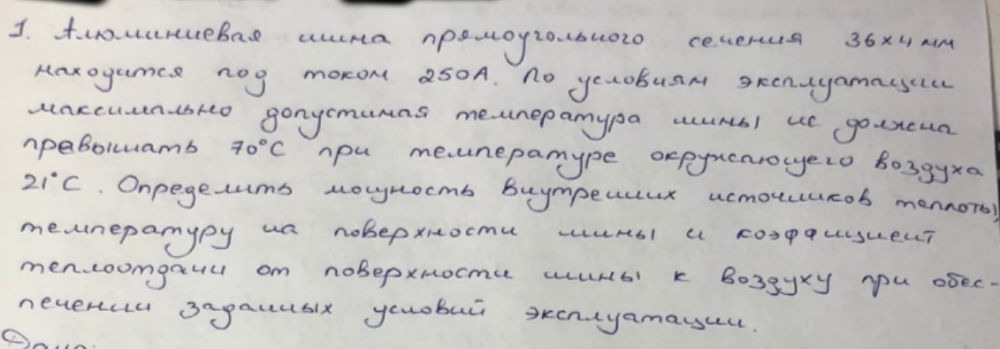 1. Алюминиевая шина прямоугольного сечения 36×4 мм
находится под током 250А. По условиям эксплуатации
максимально допустимая температура шины не должна
превышать 70°С при температуре окружающего воздуха
21°С. Определить мощность внутренних источников теплоты,
температуру на поверхности шины и коэффициент
теплоотдачи от поверхности шины к воздуху при обес-
печении заданных условий эксплуатации.
Дано: